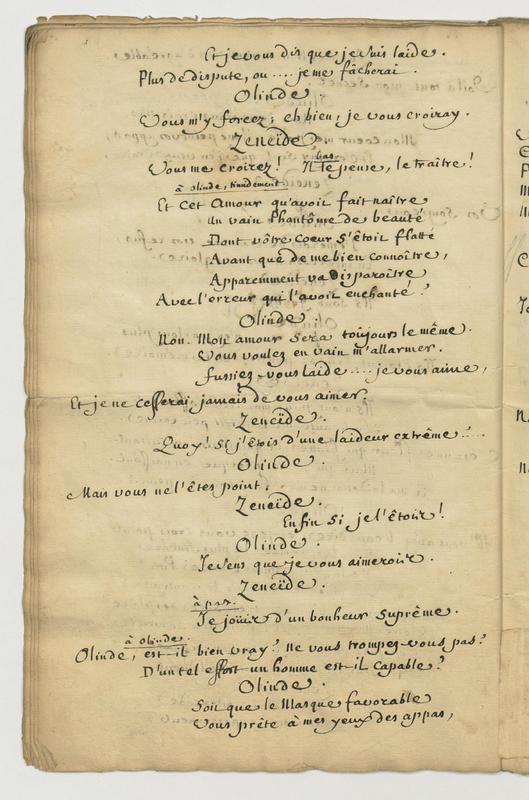 Et je vous dis que je suis laide.
Plus de dispute, ou .... je me fâcherai.
Olinde.
Vous m'y forcez; eh bien, je vous croiray.
Zeneïde.
bas.
Vous me croirez! Il le pense, le traître!
à olinde, timidement
Et cet Amour qu'avoit fait naître
un vain Phantôme de beauté
Dont vôtre coeur s'étoit flatté
Avant que de me bien connoître,
Apparemment va disparoître
Avec l'erreur qui l'avoit enchanté?
Olinde.
Non. Mon amour sera toujours le même.
Vous voulez en vain m'allarmer.
fussiez-vous laide .... je vous aime,
Et je ne cesserai jamais de vous aimer?
Zeneïde.
Quoy! si j'étois d'une laideur extrême?....
Olinde.
Mais vous ne l'êtes point.
Zeneïde.
Enfin si je l'étois!
Olinde.
Je sens que je vous aimerois.
Zeneïde.
à part.
Je joüis d'un bonheur suprême.
à olinde.
Olinde, est-il bien vray? ne vous trompez-vous pas?
D'un tel effort un homme est-il capable?
Olinde.
Soit que le Masque favorable
Vous prête à mes yeux des appas,